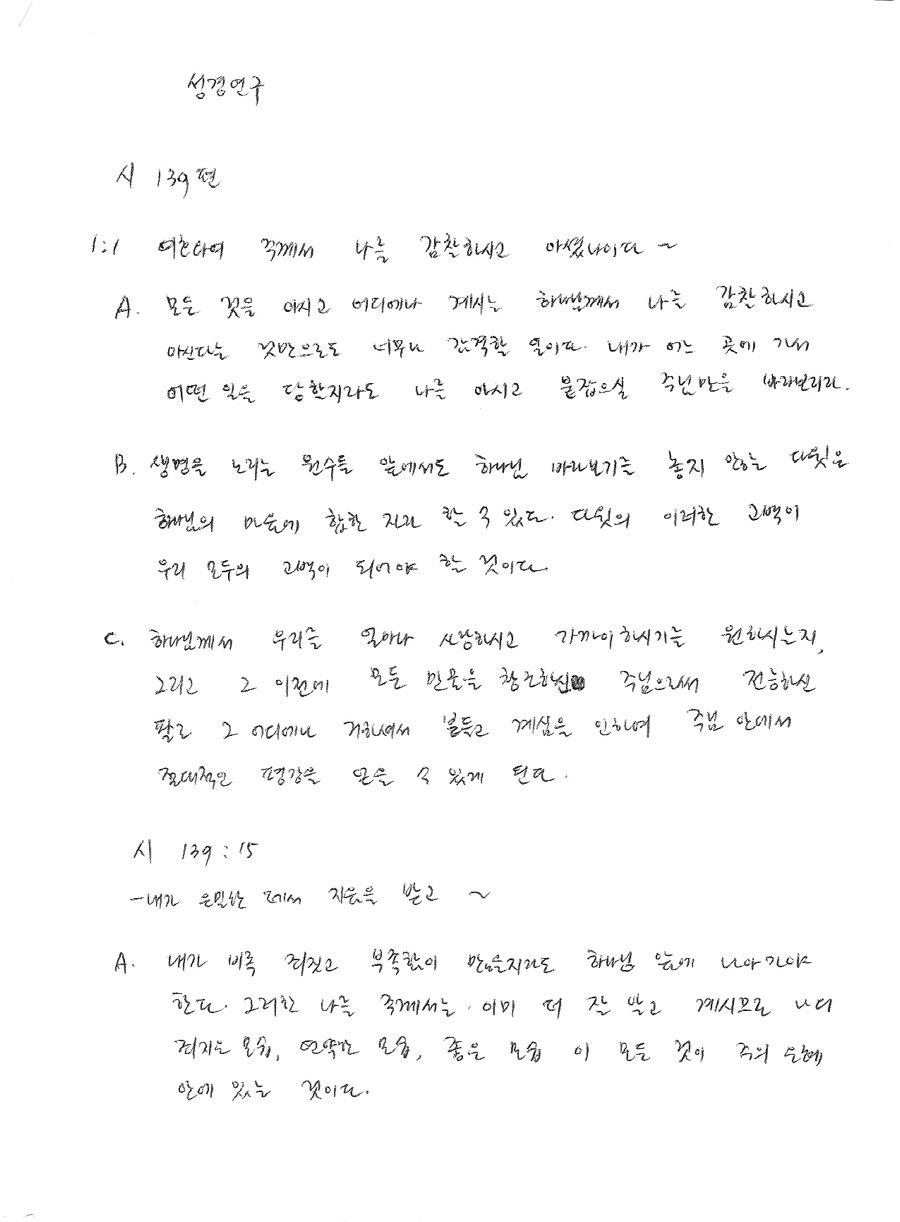 성경연구
시 139편
1:1 여호와여 주께서 나를 감찰하시고 아셨나이다 ~
A. 모든 것을 아시고 어디에나 계시는 하나님께서 나를 감찰하시고
아신다는 것만으로도 너무나 감격할 일이다. 내가 어느 곳에 가서
어떤 일을 당한지라도 나를 아시고 붙잡으실 주님만을 바라보리라.
B. 생명을 노리는 원수들 앞에서도 하나님 바라보기를 놓지 않는 다윗은
하나님의 마음에 합한 자라 할 수 있다. 다윗의 이러한 고백이
우리 모두의 고백이 되어야 할 것이다.
C. 하나님께서 우리를 얼마나 사랑하시고 가까이하시기를 원하시는지,
그리고 그 이전에 모든 만물을 창조하신 주님으로써 전능하신
팔로 그 어디에나 거하셔서 붙들고 계심을 인하여 주님 안에서
절대적인 평강을 얻을 수 있게 된다.
시 139:15
-내가 은밀한 데서 지음을 받고 ~
A. 내가 비록 죄짓고 부족함이 많을지라도 하나님 앞에 나아가야
한다. 그러한 나를 주께서는 이미 더 잘 알고 계시므로 나의
죄지은 모습, 연약한 모습, 좋은 모습 이 모든 것이 주의 은혜
안에 있는 것이다.